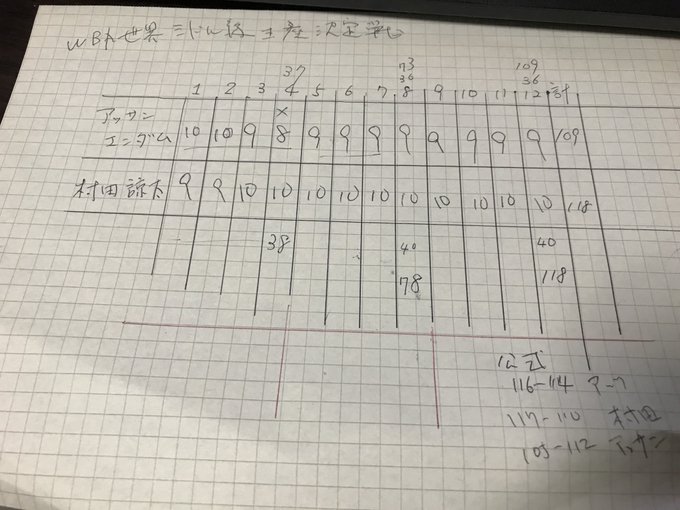 WBA世界ミドル級王座決定戦
37 73 109
36 36
1 2 3 4 5 6 7 8 9 10 11 12 計
×
アッサン
エンダム 10 10 9 8 9 9 9 9 9 9 9 9 109
村田諒太 9 9 10 10 10 10 10 10 10 10 10 10 118
38 40 40
78 118
公式
116-114 アッサン
117-110 村田
105-112 アッサン